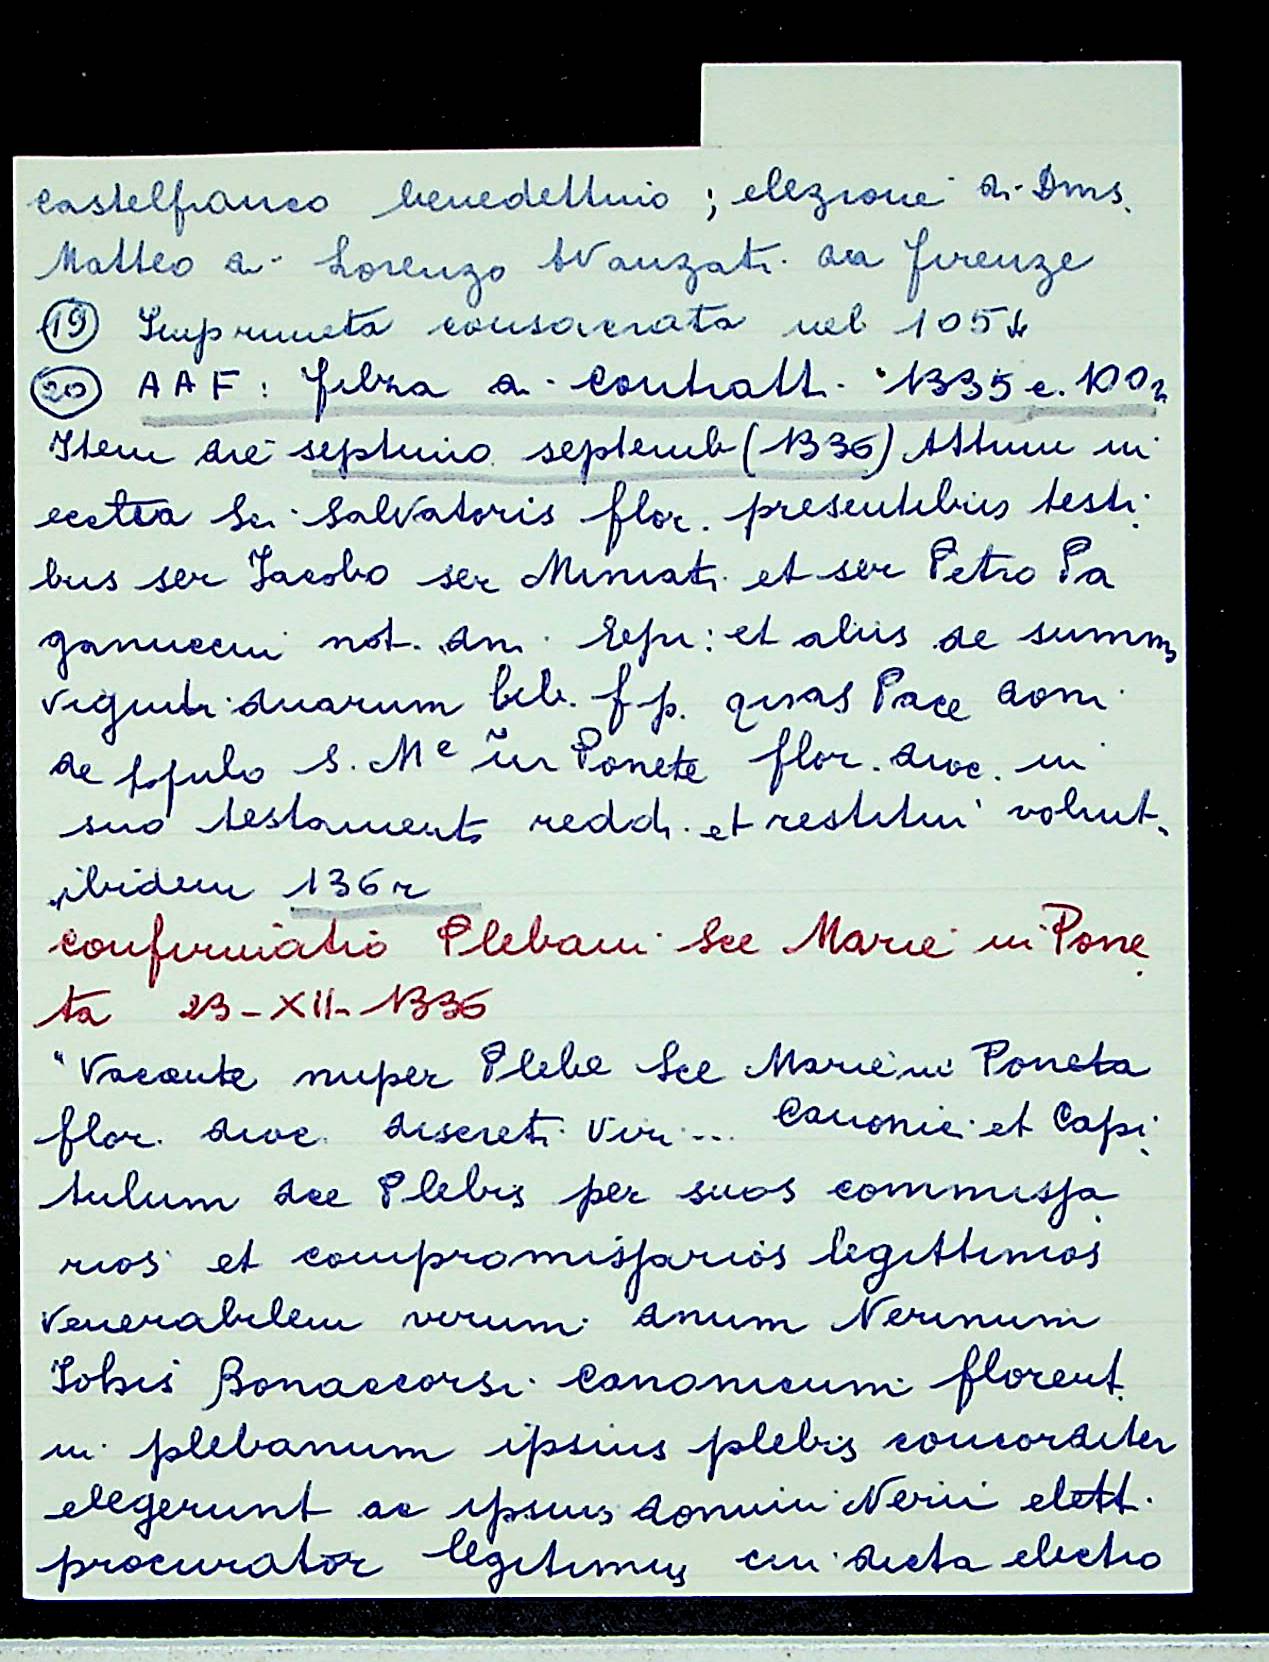 Castelfranco benedettino ; elezione di Dms.
Matteo di Lorenzo Avanzati da Firenze
19 Impruneta consacrata nel 1054
20 AAF: filza di contratti 1335 c. 100r
Item die septimo septemb (1336) Actum in
ecctia Sci Salvatoris flor. presentibus testi
bus ser Jacobo ser Miniati et ser Petro Pa
ganuccii not. dni Epi: et aliis de summa
viginti duarum lib. f p. quas Pace doni
de populo S. Me in Ponete flor. dioc. in
suo testamento reddi et restitui voluit.
ibidem 136r
confirmatio Plebani Sce Marie in Pone
ta 23-XII-1336
"Vacante nuper Plebe Sce Marie in Poneta
flor. dioc. discreti viri ... Canonici et Capi
tulum dce Plebis per suos commissa
rios et compromissarios legittimos
venerabilem virum dnum Nerinum
Johis Bonaccorsi canonicum florent.
in plebanum ipsius plebis concorditer
elegerunt ac ipsius domini Nerii elett.
procurator legitimus cui dicta electio